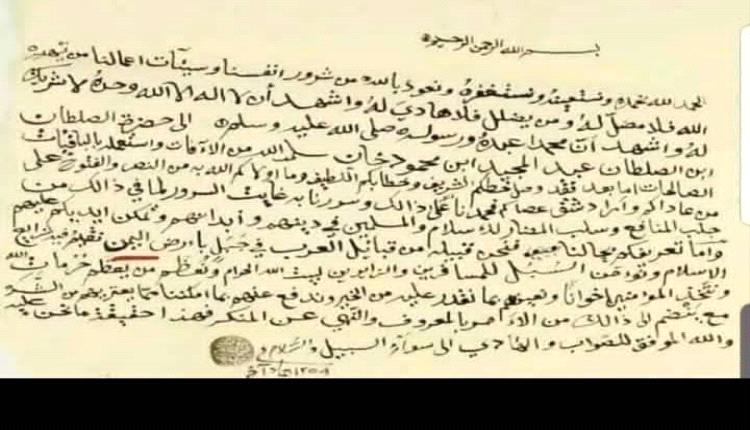 بسم الله الرحمن الرحيم
الحمد لله نحمده ونستعينه ونستغفره ونعوذ بالله من شرور انفسنا وسيئآت اعمالنا من يهديه
الله فلا مضل له ومن يضلل فلا هادي له واشهد أن لا اله الا الله وحده لا شريك
له واشهد أن محمدا عبده ورسوله صلى الله عليه وسلم الى حضرة الصلطان
ابن الصلطان عبد المجيد ابن محمود خان سلمه الله من الآفات واستعمله بالباقيات
الصالحات اما بعد فقد وصل خطكم الشريف وخطابكم اللطيف وما اولاكم الله به من النصر والفتوح على
من عاداكم وأراد شق عصاكم فحمدنا الله على ذالك وسورنا به غايت السرور لما في ذالك من
جلب المنافع وسلب المضار للاسلام والمسلمين في دينهم وأبدانهم وتمكن ايديكم عليهم
وأما تعريفكم بحالنا فنحن قبيله من قبائل العرب في جبل بارض اليمن نقيم فيه شرايع
الاسلام ونوءمن السبل للمسافرين والزايرين لبيت الله الحرام ونعظم من يعظم حرمات الله
ونتخذ المؤمنين اخوانا ونعينهم بما نقدر عليه من الخير وندفع عنهم بما امكننا مما يعتريهم من الشر
مع ينضم الى ذالك من الأمر بالمعروف والنهي عن المنكر فهذا حقيقة ما نحن عليه
والله الموفق للصواب والهادي الى سوآء السبيل والسلام